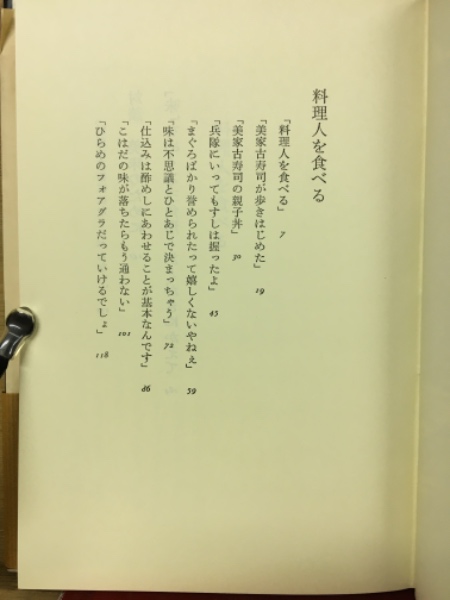 料理人を食べる
「料理人を食べる」 7
「美家古寿司が歩きはじめた」 19
「美家古寿司の親子丼」 30
「兵隊にいってもすしは握ったよ」 45
「まぐろばかり誉められたって嬉しくないやねぇ」 59
「味は不思議とひとあじで決まっちゃう」 72
「仕込みは酢めしにあわせることが基本なんです」 86
「こはだの味が落ちたらもう通わない」 101
「ひらめのフォアグラだっていけるでしょ」 118